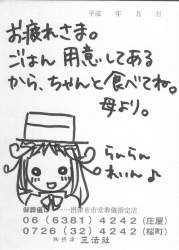 平成　年　月　日
お疲れさま。
ごはん用意してある
から、ちゃんと食べてね。
母より。
らんらん
れいん♪
御葬儀は……摂津市市営葬儀指定店
06 (6381) 4242 (庄屋)
0726 (32) 4242 (桜町)
㈲摂津 三法社